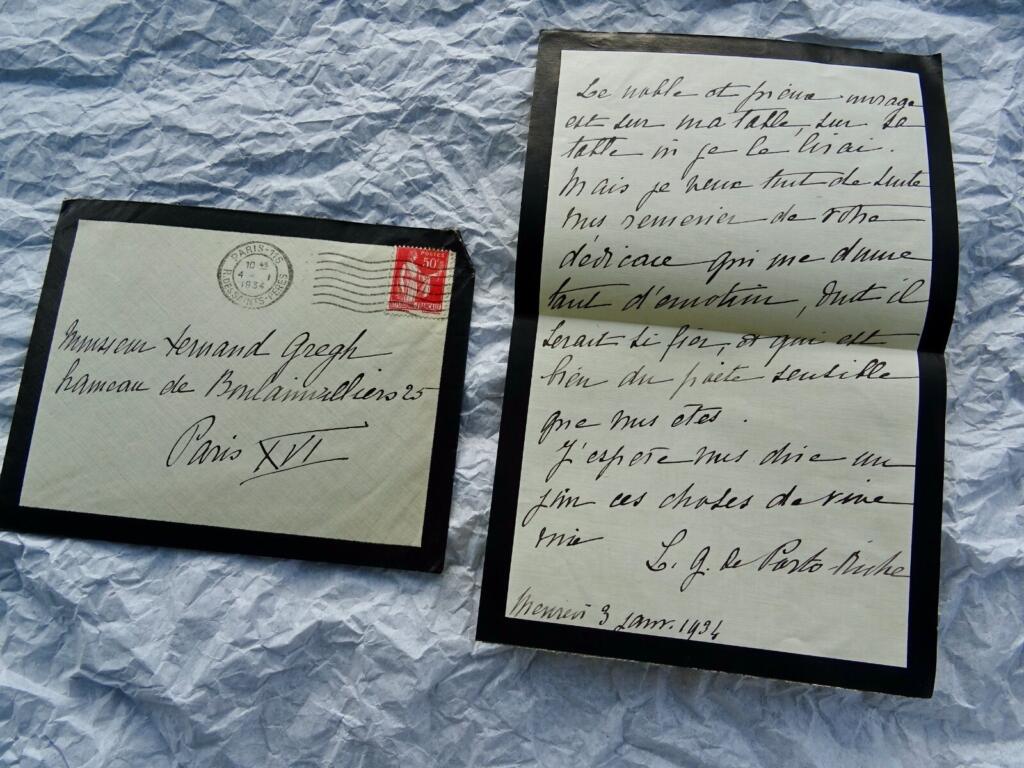 PARIS-115
R. DES SAINTS-PÈRES
10
4 - 1
1934
POSTES
50c
Monsieur Fernand Gregh
hameau de Boulainvilliers 25
Paris XVI
Le noble et pieux ouvrage
est sur ma table, sur sa
table où je le lirai.
Mais je veux tout de suite
vous remercier de votre
dédicace qui me donne
tant d'émotion, dont il
serait si fier, et qui est
bien du poète sensible
que vous êtes.
J'espère vous dire un
jour ces choses de vive
voix
L. G. de Porto-Riche
Mercredi 3 janv. 1934